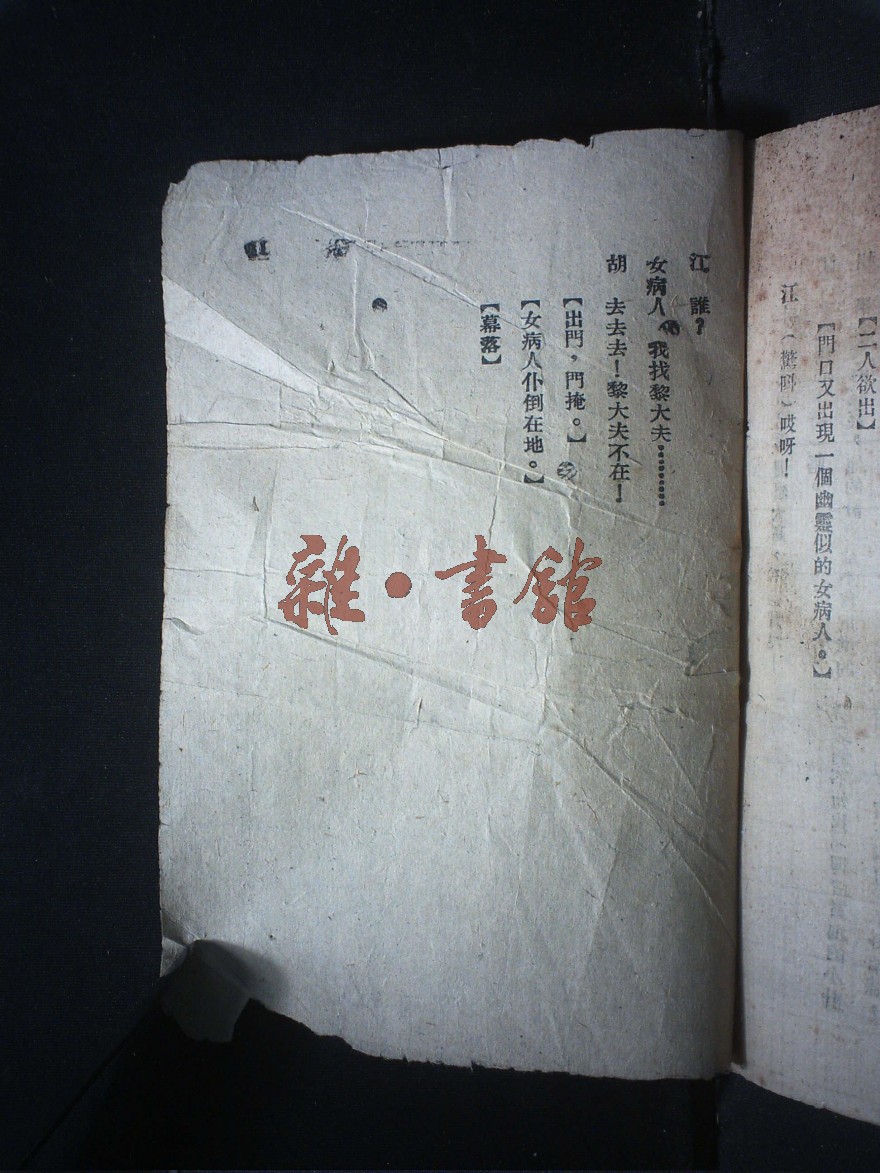 【二人欲出】
【門口又出現一個幽靈似的女病人。】
江 （驚呌）哎呀！
江 誰？
女病人 我找黎大夫…………
胡 去去去！黎大夫不在！
【出門，門掩。】
【女病人仆倒在地。】
【幕落】
雜·書館